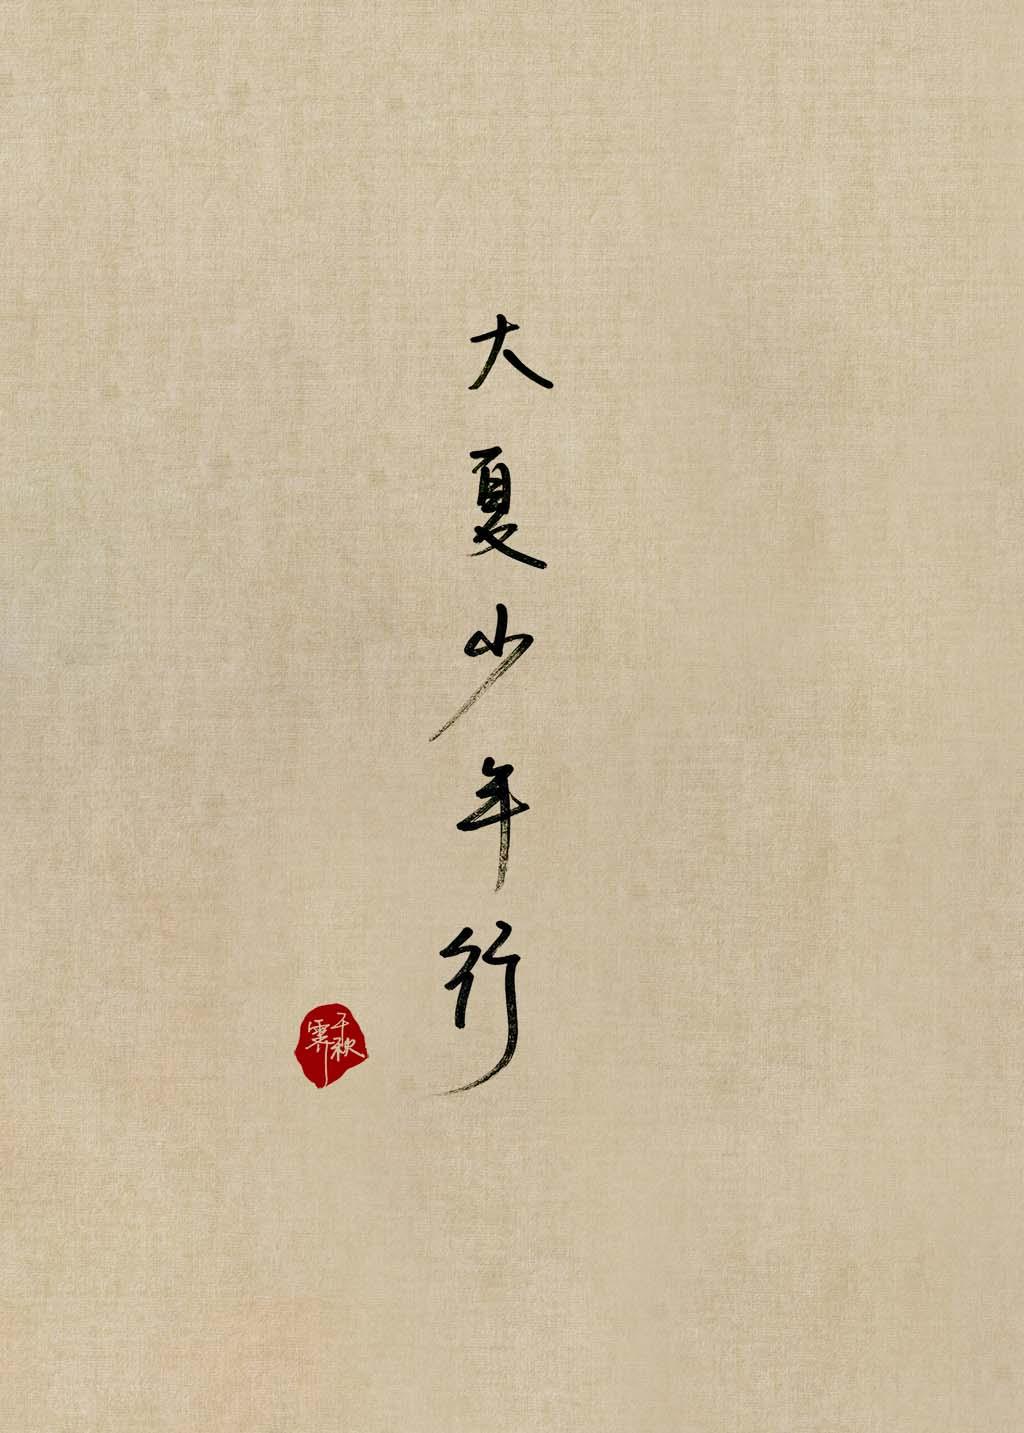 大夏少年行
千秋